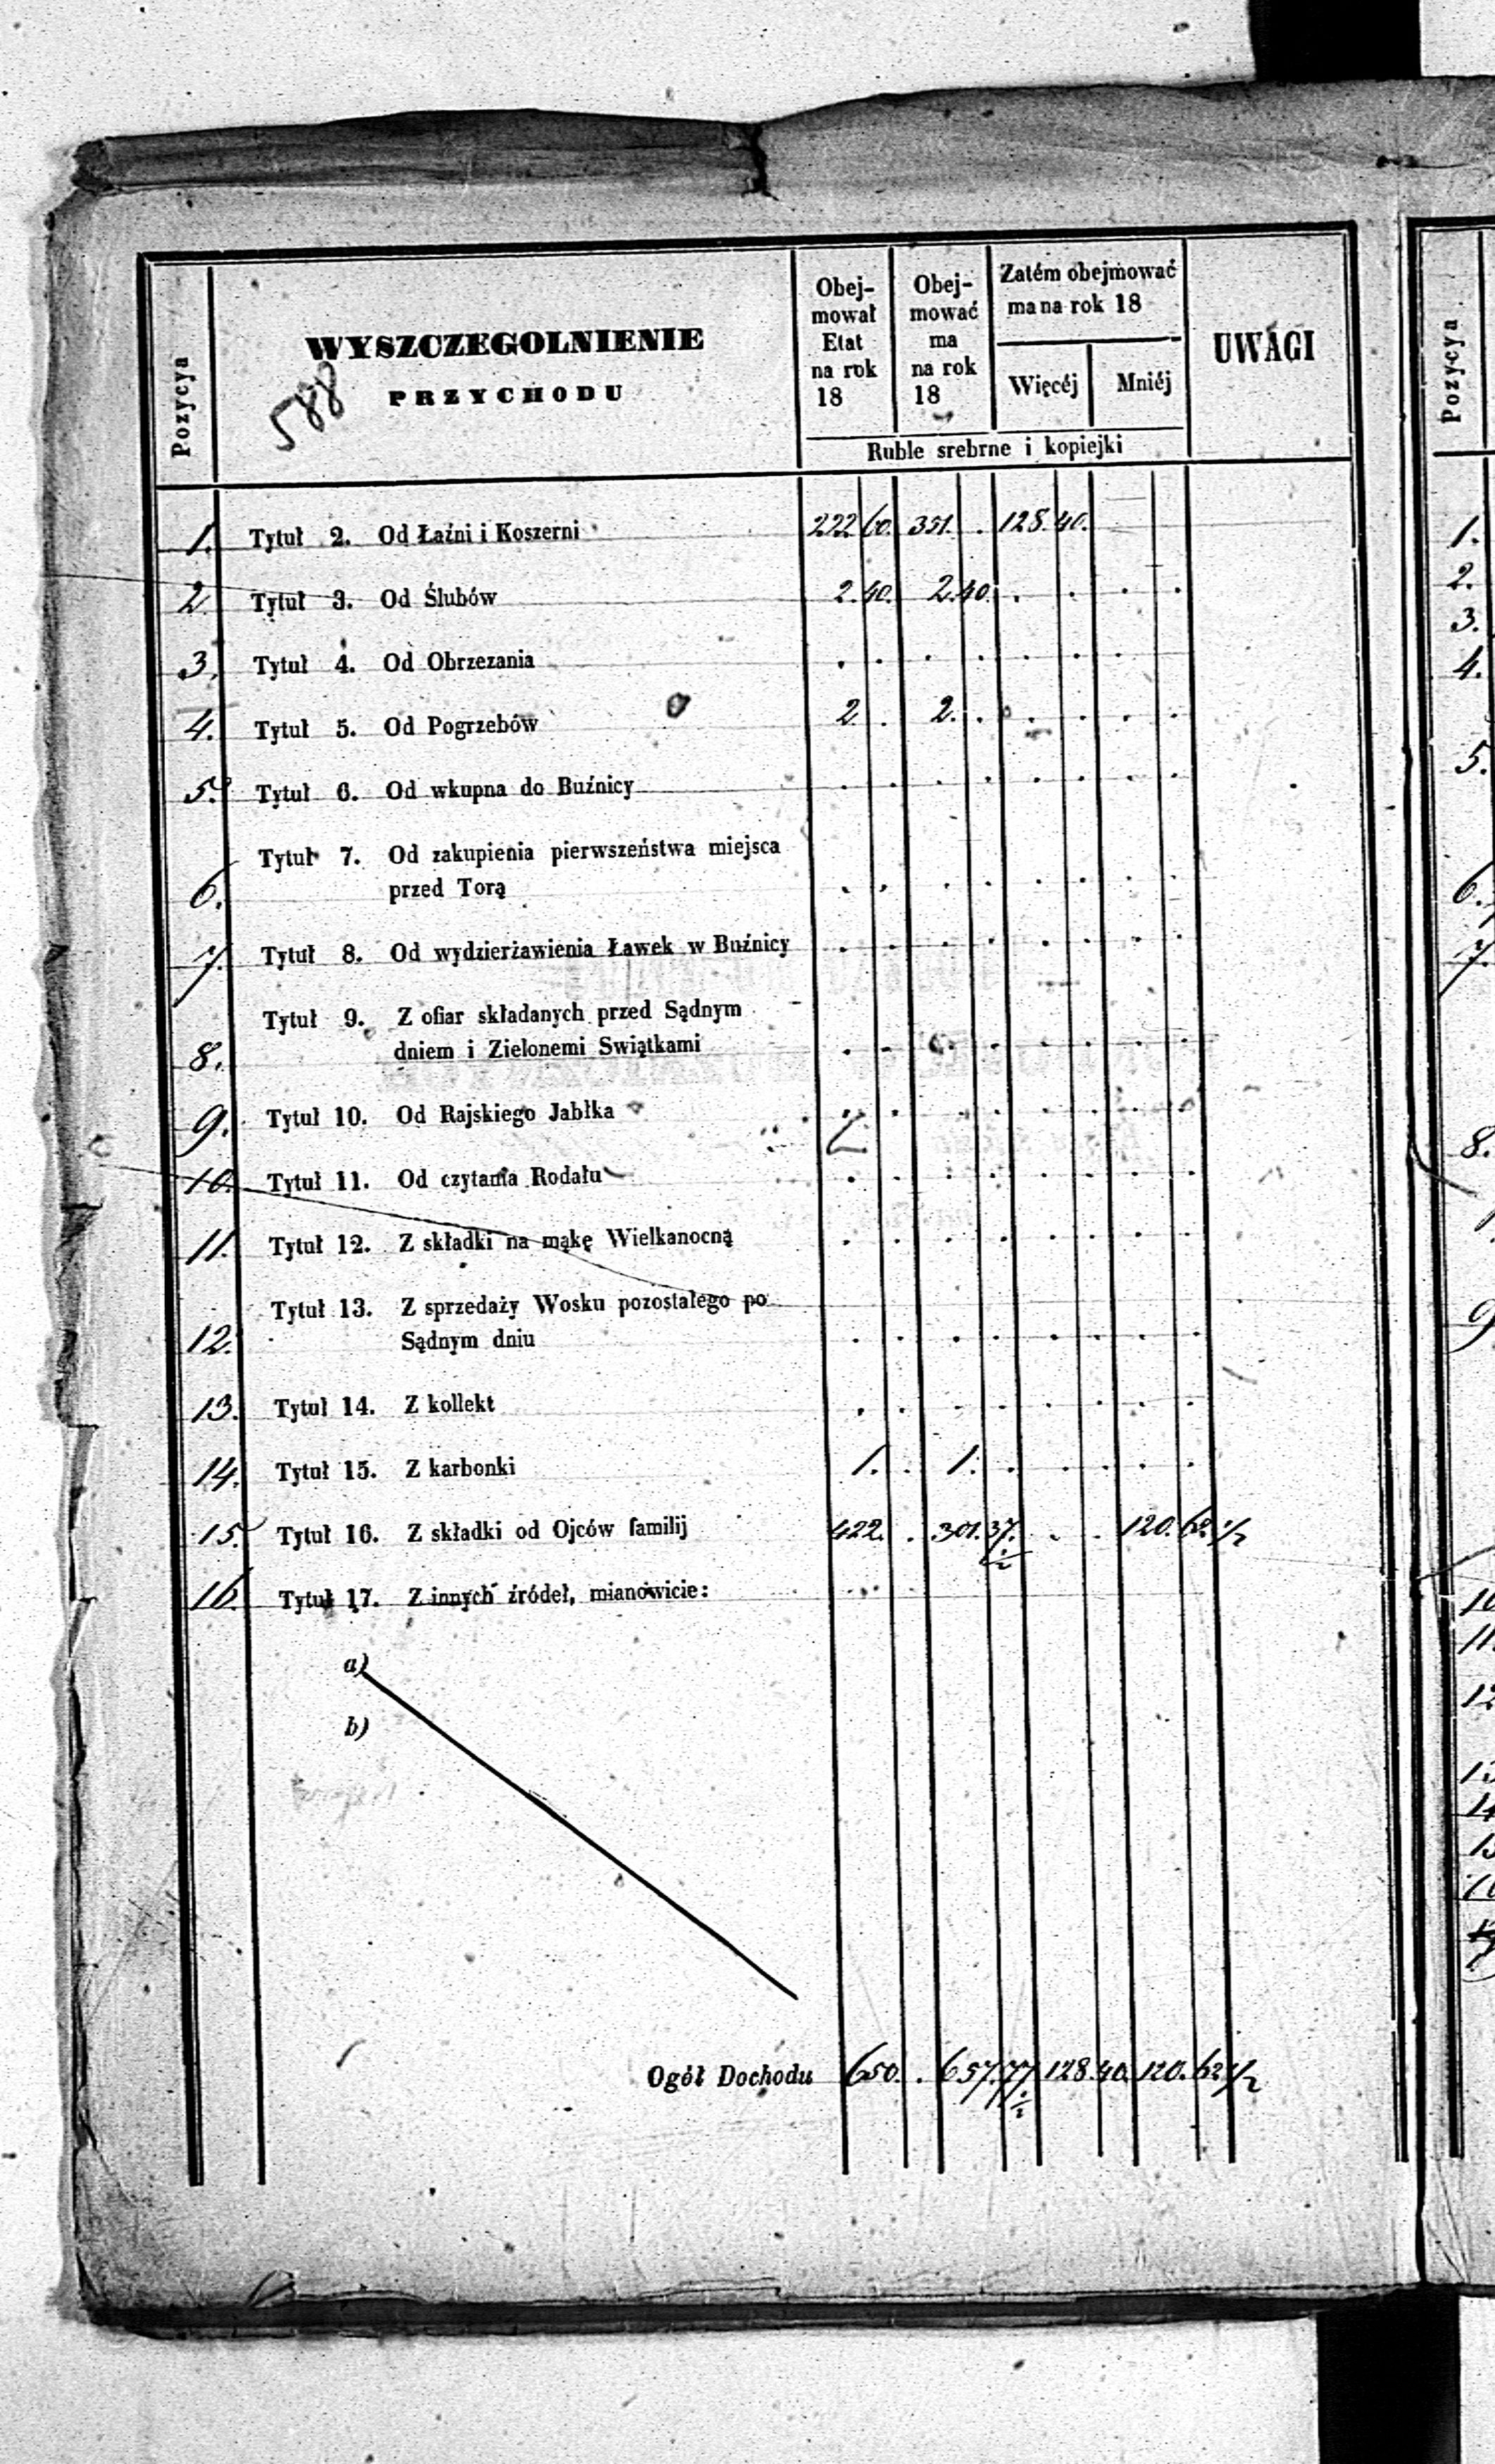 Pozycya
WYSZCZEGOLNIENIE
PRZYCHODU
588
Obej-
mował
Etat
na rok
18
Obej-
mować
ma
na rok
18
Zatém obejmować
ma na rok 18
Więcéj
Mniéj
Ruble srebrne i kopiejki
UWAGI
1. Tytuł 2. Od Łaźni i Koszerni 222 60. 351. . 128. 40.
2. Tytuł 3. Od Ślubów 2. 40. 2. 40. . . . .
3. Tytuł 4. Od Obrzezania . . . . . . . .
4. Tytuł 5. Od Pogrzebów 2. . 2. . . . . .
5. Tytuł 6. Od wkupna do Buźnicy . . . . . . . .
Tytuł 7. Od zakupienia pierwszeństwa miejsca
6. przed Torą . . . . . . . .
7. Tytuł 8. Od wydzierżawienia Ławek w Buźnicy . . . . . . . .
Tytuł 9. Z ofiar składanych przed Sądnym
8. dniem i Zielonemi Swiątkami . . . . . . . .
9. Tytuł 10. Od Rajskiego Jabłka . . . . . . . .
10. Tytuł 11. Od czytania Rodału . . . . . . . .
11. Tytuł 12. Z składki na mąkę Wielkanocną . . . . . . . .
Tytuł 13. Z sprzedaży Wosku pozostałego po
12. Sądnym dniu . . . . . . . .
13. Tytuł 14. Z kollekt . . . . . . . .
14. Tytuł 15. Z karbonki 1. . 1. . . . . .
15. Tytuł 16. Z składki od Ojców familij 422. . 301. 37. 1/2 . . 120. 62. 1/2
16. Tytuł 17. Z innych źródeł, mianowicie:
a)
b)
Ogół Dochodu 650. . 657. 77. 1/2 128. 40. 120. 62. 1/2
Pozycya
1.
2.
3.
4.
5.
6.
7.
8.
9.
10
11.
12
13
14
15